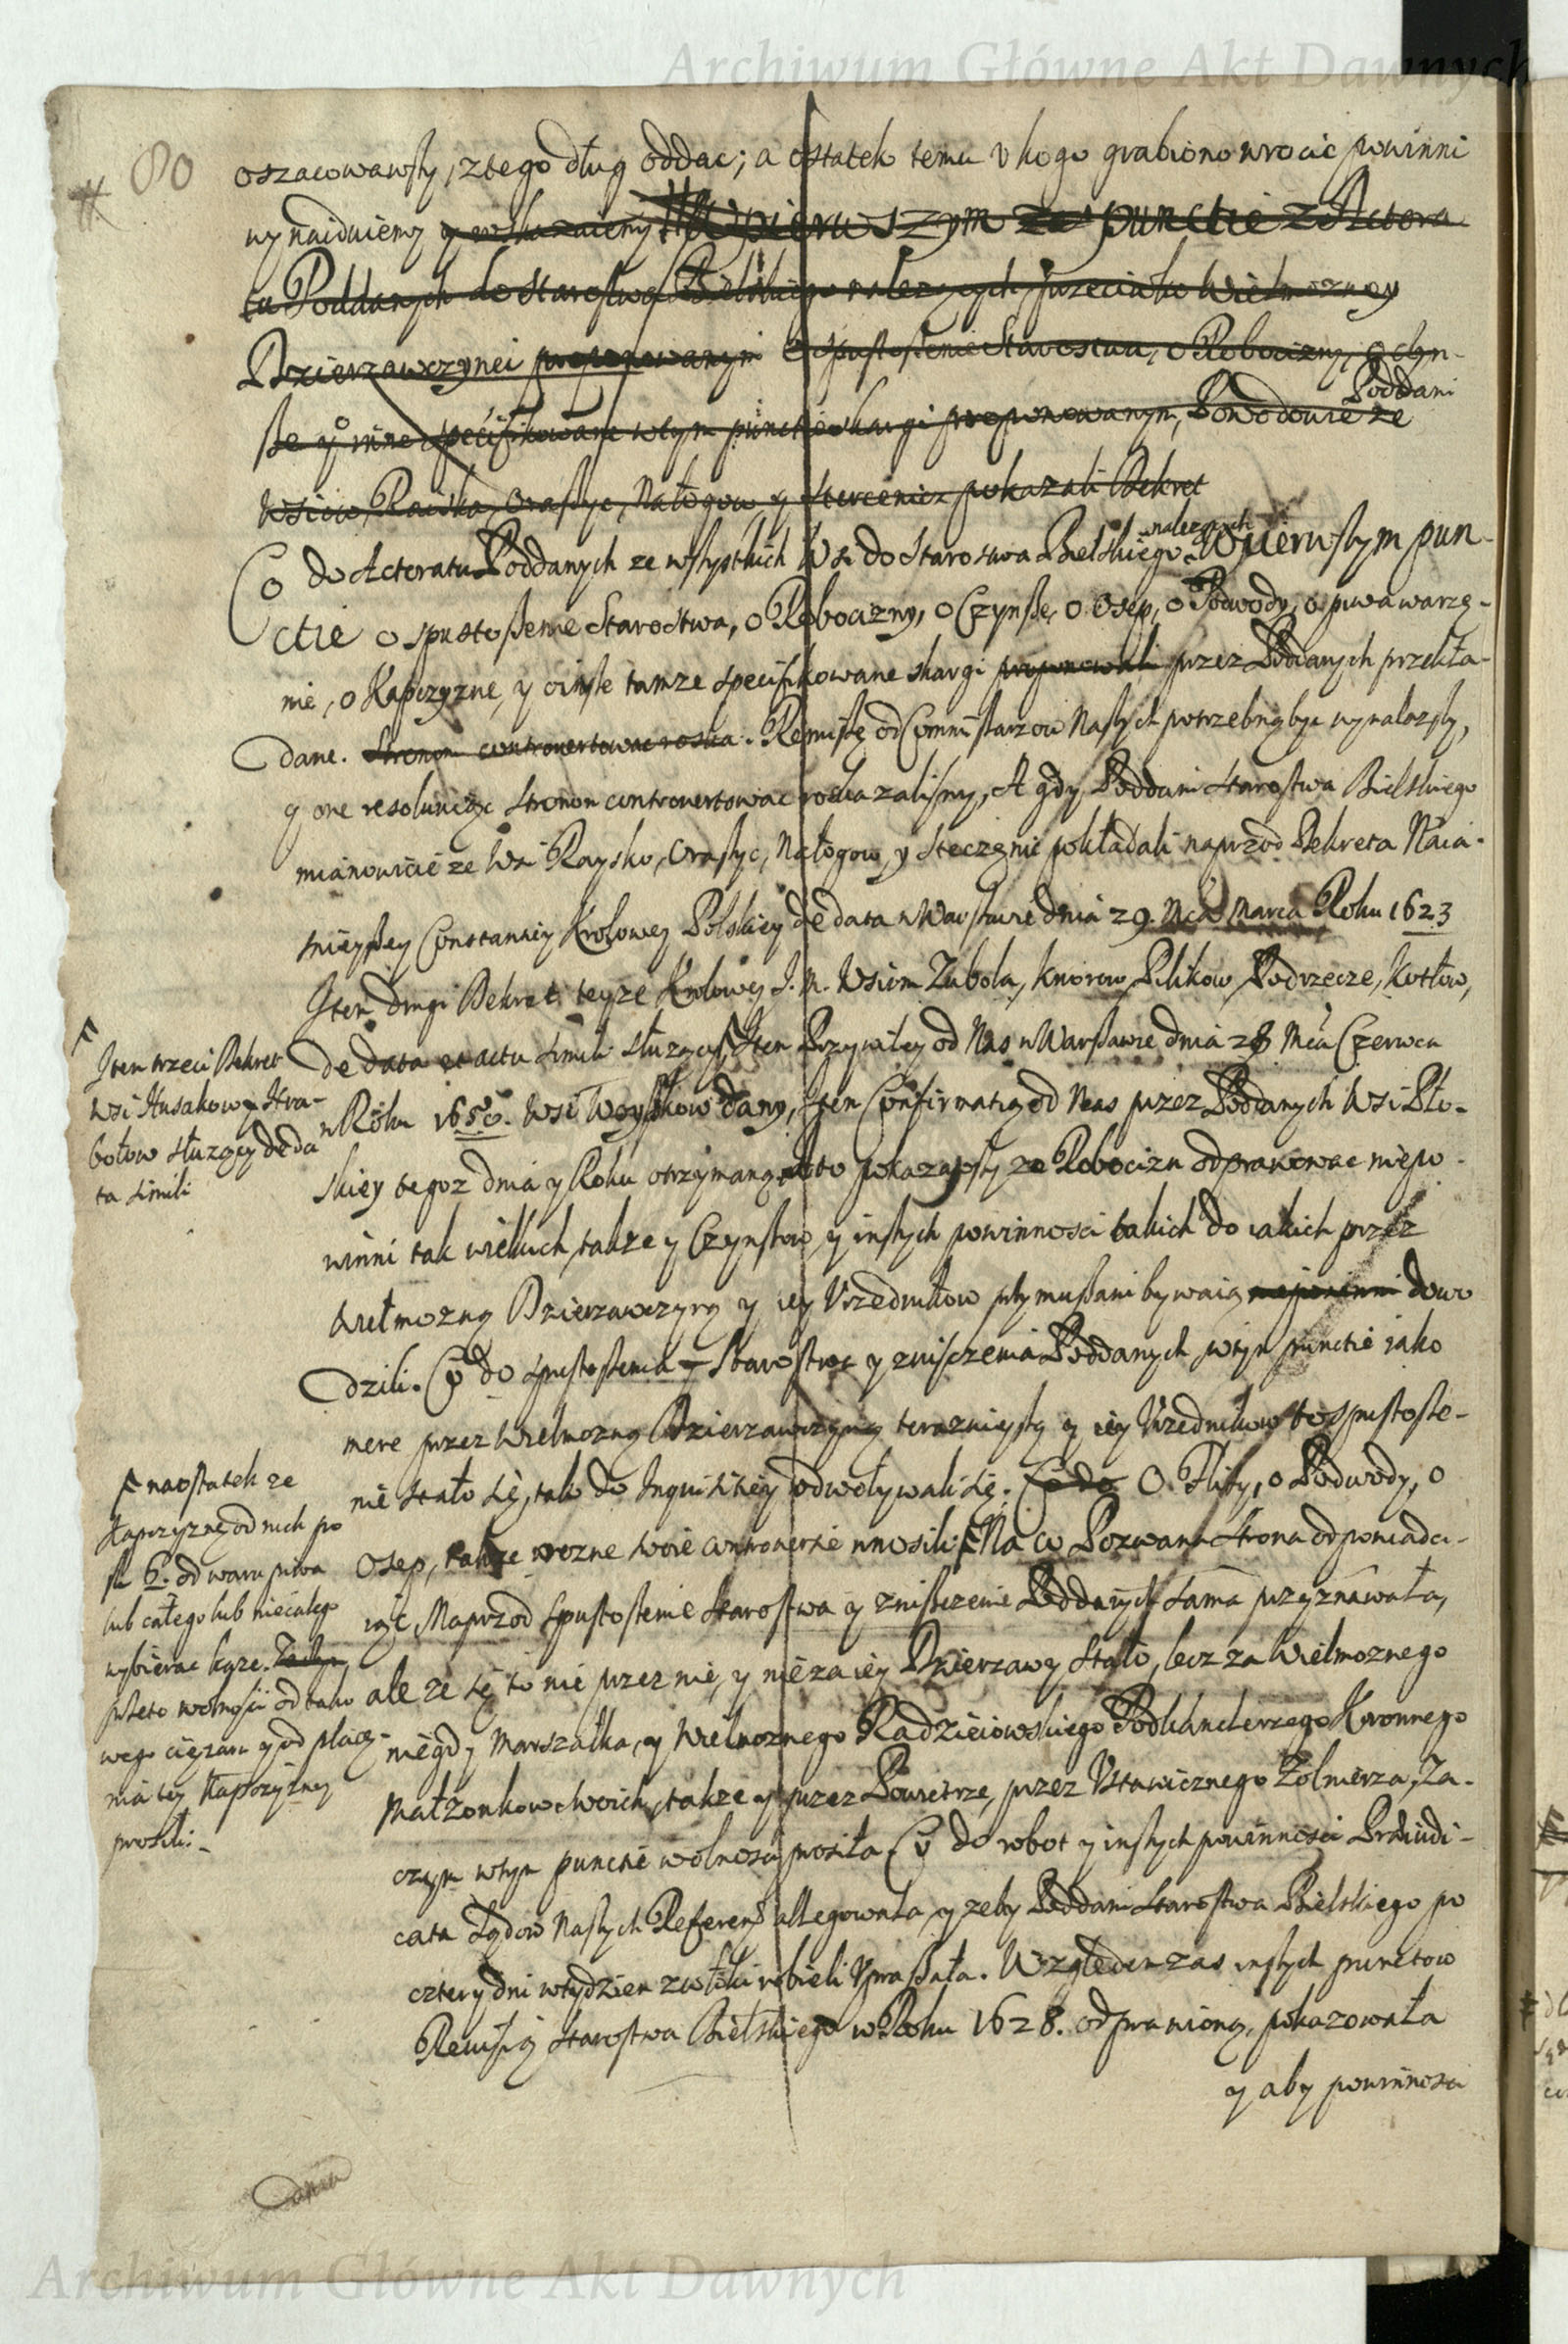 Archiwum Główne Akt Dawnych
80
oszacowawszy, z tego dług oddac; a ostatek temu v kogo grabiono wrocic powinni
wynaiduiemy y wskazuiemy # W pierwszym zas punctie z Actora
tu Poddanych do Starostwa Bielskiego nalezących przeciwko Wielmozney
Dzierzawczynei proponowanym o spustoszenie Starostwa, o Robocizny, o czyn-
Poddani
sze y inne specifikowane w tym punctie skargi proponowanym, Powodowie ze
wsiow Raiska, Oraszye, Nałogow y Stercenicz pokazali Dekret
Co do Actoratu Poddanych ze wszystkich Wsi do Starostwa Bielskiego nalezących W pierwszym pun-
ctie o spustoszenie Starostwa, o Robocizny, o Czynsze, o Osep, o Podwody, o piwa warze-
nie, o Kapczyzne, y o insze tamze specifikowane skargi proponowali przez Poddanych przeło-
dane. Stronom controvertowac roska. Remissę od Commissarzow Naszych potrzebną byc wynalazszy,
y one resolwuiąc Stronom controvertowac roskazalismy, A gdy Poddani Starostwa Bielskiego
mianowicie ze Wsi Raysko, Oraszye, Nałogow, y Steczęnie pokładali naprzod Dekreta Naia-
snieyszey Constantiey Krolowey Polskiey de data w Warszawie dnia 29. Mca Marca Roku 1623
Item drugi Dekret teyze Krolowey J. M. Wsiom Zubola, Knorow, Pilikow, Podrzecze, Kotłow,
de data et actu simili słuzący, Item Przywiley od Nas w Warszawie dnia 28 Mca Czerwca
w Roku 1650. Wsi Woyszkow dany, Item Confirmatią od Nas przez Poddanych Wsi Pło-
skiey tegoz dnia y Roku otrzymaną, a to pokazawszy ze Robocizn odprawowac niepo-
winni tak wielkich, takze y Czynszow y inszych powinnosci takich do iakich przez
Wielmozną Dzierzawczyną y iey Vrzednikow przymuszani bywaią niepowinni dowo
dzili. Co do spustoszenia Starostwa y zniszczenia Poddanych w tym punctie iako
mere przez Wielmozną Dzierzawczyną terazniejszą y iey Vrzednikow to spustosze-
nie stało się, tak do Inquisitiey odwoływali się. Co do O. Flisy, o Podwody, o
Osep, takze rozne swoie controversie wnosili. Na co Pozwana Strona odpowiada-
iąc, Naprzod spustoszenie Starostwa y zniszczenie Poddanych sama przyznawała,
ale ze się to nie przez nie, y nie za iey Dzierzawy stało, lecz za Wielmoznego
niegdy Marszałka, y Wielmoznego Radzieiowskiego Podkanclerzego Koronnego
Małzonkow swoich, takze y przez Powietrze, przez Vstawicznego Zołnierza, Za-
czym w tym punctie wolnosci prosiła. Co do robot y inszych powinnosci Praeiudi-
cata Sądow Naszych Referend allegowała, y zeby Poddani Starostwa Bielskiego po
cztery dni w tydzien z włoki robieli Vpraszała. Względem zas inszych punctow
Rewisią Starostwa Bielskiego w Roku 1628. odprawioną, pokazowała
y aby powinnosci
Item trzeci Dekret
wsi Husakow y Hra-
botow słuzący de da
ta simili
naostatek ze
kapczyznę od nich po
fl 6. od waru piwa
lub całego lub niecałego
wybierac kaze. Zaczym
przeto wolnosci od tako
wego cięzaru y od płace-
nia tey kapczyzny
prosili.
Archiwum Główne Akt Dawnych